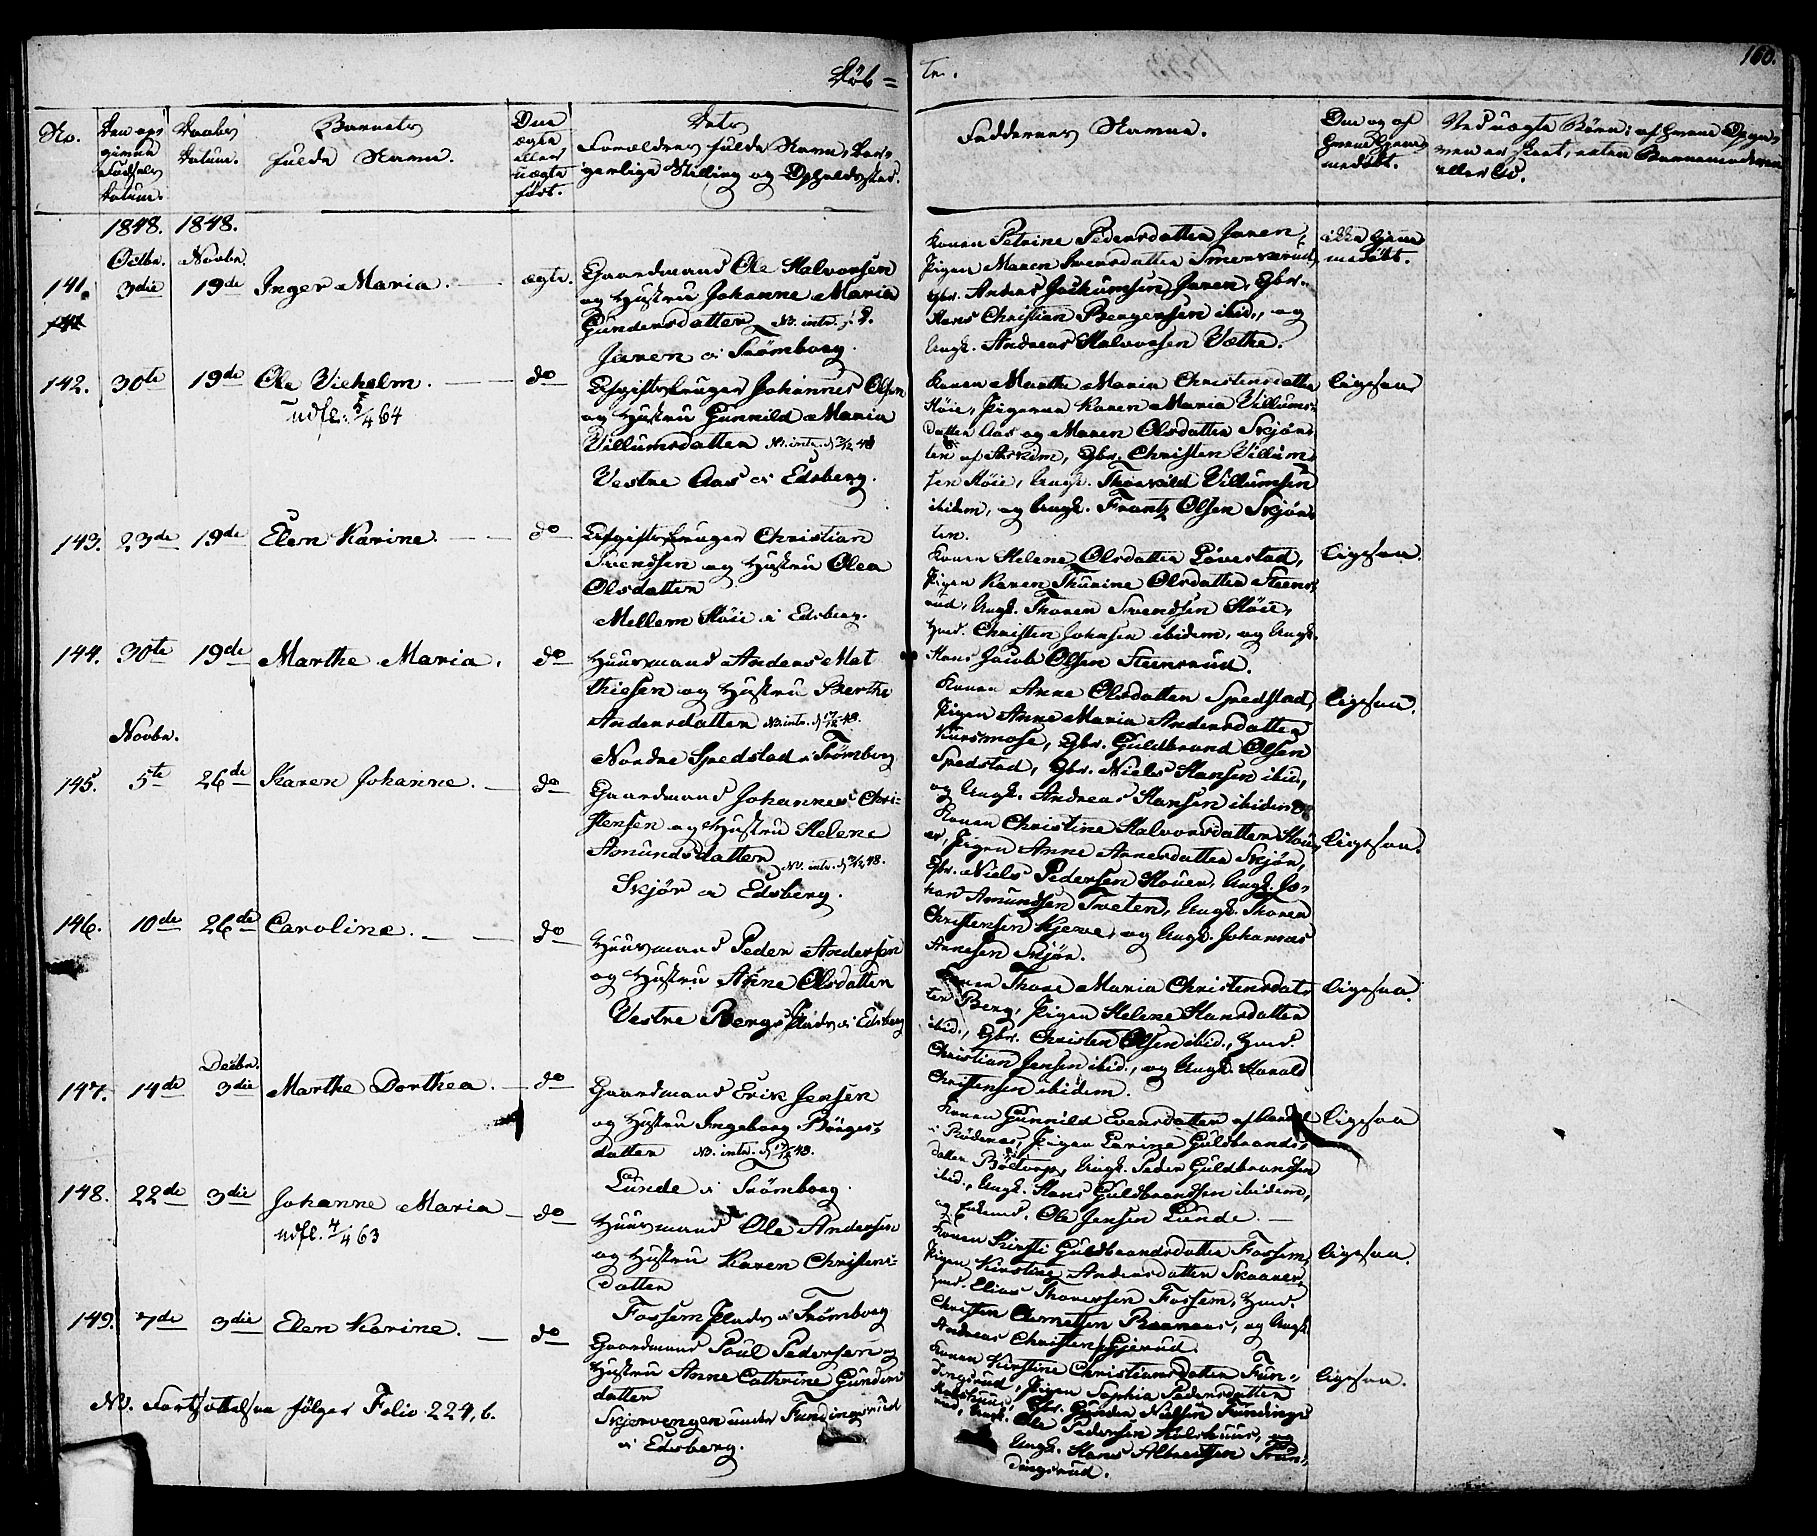 Døb=
te.
160.
No.
Den opgivne Fødsels Datum.
Daabs Datum.
Barnets fulde Navn.
Om ægte eller uægte født.
Dets Forældres fulde Navn, borgerlige Stilling og Opholdssted.
Faddernes Navne.
Om og af hvem hjemmedøbt.
Ved uægte Børn: af hvem Opgaven er skeet, enten Barnemoderen eller
1848. 1848.
Octbr. Novbr.
141. 3die 19de Inger Maria. ægte.
Gaardmand Ole Halvorsen
og Hustru Johanne Maria
Gundersdatter NB. intr.
Jaren i Trømborg.
Konen Petrine Pedersdatter Jaren,
Pigen Maren Svensdatter Smersrud,
Gbr. Andreas Jochumsen Jaren, Gbr.
Hans Christian Bergersen ibid., og
Ungk. Andreas Halvorsen Vethe.
ikke hjemmedøbt.
142. 30te 19de Ole Vilhelm. do
udfl. 5/4 64
Leisgistbruger Johannes Olsen
og Hustru Gunnild Maria
Villumsdatter NB. intr. 48
Vestre Aas i Edsberg.
Konen Marthe Maria Christensdatter
Høie, Pigerne Karen Maria Villums-
datter Aas og Maren Olsdatter Skjøns-
ten af Askim, Gbr. Christen Villum-
sen Høie, Ungk. Thorvild Villumsen
ibidem, og Ungk. Frantz Olsen Skjøns-
ten.
ligesaa
143. 23de 19de Elen Karine. do
Christian
Svendsen og Hustru Olea
Olsdatter
Mellem Høie i Edsberg.
Konen Helene Olsdatter Løvestad,
Pigen Karen Thurine Olsdatter Steens-
rud, Ungk. Thoren Svendsen Høie,
Hmd. Christen Johnsen ibidem, og Ungk.
Hans Jacob Olsen Steensrud.
ligesaa.
144. 30te 19de Marthe Maria. do
Huusmand Anders Mat
thiesen og Hustru Berthe
Andersdatter NB. intr. 48.
Nordre Spedstad i Trømborg
Konen Anne Olsdatter Spedstad,
Pigen Anne Maria Andersdatter
Kursmose, Gbr. Guldbrand Olsen
Spedstad, Gbr. Niels Hansen ibid.,
og Ungk. Andreas Hansen ibidem
ligesaa.
Novbr.
145. 5te 26de Karen Johanne. do
Gaardmand Johannes Chri-
stensen og Hustru Helene
Amundsdatter NB. intr. 48.
Skjør i Edsberg.
Konen Christine Halvorsdatter Hou-
er, Pigen Anne Arnesdatter Skjør,
Gbr. Niels Pedersen Houer, Ungk. Jo-
han Amundsen Tveten, Ungk. Thoren
Christensen Kjerve, og Ungk. Johannes
Arnesen Skjør.
ligesaa.
146. 10de 26de Caroline. do
Huusmand Peder Andersen
og Hustru Anne Olsdatter
Vestre Bergs Plads i Edsberg
Konen Thore Maria Christensdat-
ter Berg, Pigen Helene Hansdatter
ibid., Gbr. Christen Olsen ibid., Hmd.
Christian Jensen ibid., og Ungk. Harald
Christensen ibidem.
ligesaa.
Decbr.
147. 14de 3die Marthe Dorthea. do
Gaardmand Erik Jensen
og Hustru Ingeborg Børges-
datter NB. intr. 48.
Lunde i Trømborg.
Konen Gunnild Evensdatter af
i Rødenes, Pigen Larine Guldbrands-
datter Bøtorp, Ungk. Peder Guldbrandsen
ibid., Ungk. Hans Guldbrandsen ibidem,
og Ole Jensen Lunde.
ligesaa
148. 22de 3die Johanne Maria do
udfl. 4/4 63
Huusmand Ole Andersen
og Hustru Karen Christens-
datter
Fossem Plads i Trømborg
Konen Kirsti Guldbrandsdatter Fossem,
Pigen Kirstine Andersdatter Skaarer,
Hmd. Elias Thoresen Fossem, Hmd.
Christen Clemetsen Ramnæs, og Ungk.
Andreas Christensen Gjerud.
ligesaa.
149. 7de 3die Elen Karine. do
Gaardmand Poul Pedersen og
Hustru Anne Cathrine Gunders
datter
Skjervengen under Fundingsrud
i Edsberg.
Konen Kirstine Christiansdatter Fun-
dingsrud, Pigen Sophia Pedersdatter
Kolshuus, Gbr. Gunder Nilsen Fundings-
rud, Ungk. Ole Pedersen Kolshuus, og
Ungk. Hans Albretsen Fun-
dingsrud.
ligesaa.
NB. Fortsættelsen følger Folio 224, b.